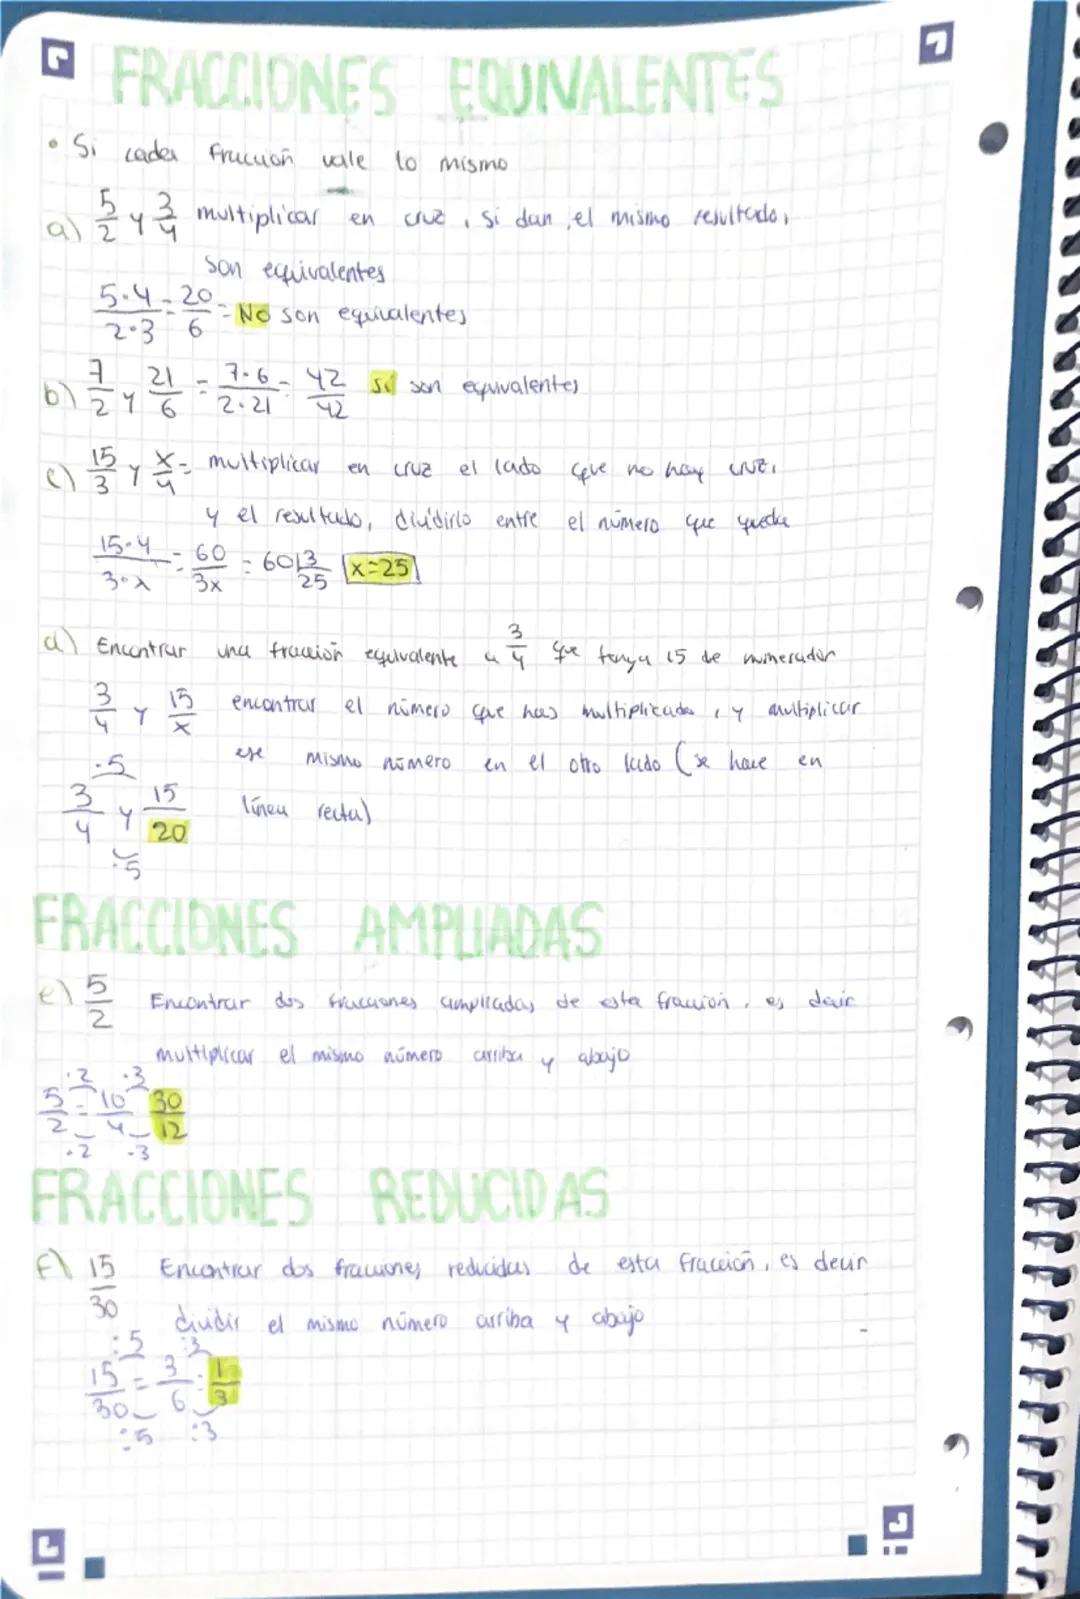 FRACCIONES EQUIVALENTES
• Si cada fracción vale lo mismo
a) 5/2 y 3/4 multiplicar en cruz, si dan el mismo resultado,
son equivalentes
5·4/2·3 = 20/6 = No son equivalentes
b) 7/2 y 21/6 = 7·6/2·21 = 42/42 sí son equivalentes
c) 15/3 y x/4 = multiplicar en cruz el lado que no hay cruz,
y el resultado, dividirlo entre el número que queda
15·4/3·x = 60/3x = 60|3 25 x=25
d) Encontrar una fracción equivalente a 3/4 que tenga 15 de numerador
3/4 y 15/x encontrar el número que has multiplicado, y multiplicar
ese mismo número en el otro lado (se hace en
línea recta)
·5
3/4 y 15/20
·5
FRACCIONES AMPLIADAS
e) 5/2 Encontrar dos fracciones ampliadas de esta fracción, es decir
multiplicar el mismo número arriba y abajo
·2 ·3
5/2 = 10/4 30/12
·2 ·3
FRACCIONES REDUCIDAS
f) 15/30 Encontrar dos fracciones reducidas de esta fracción, es decir
dividir el mismo número arriba y abajo
:5 :3
15/30 = 3/6 = 1/3
:5 :3